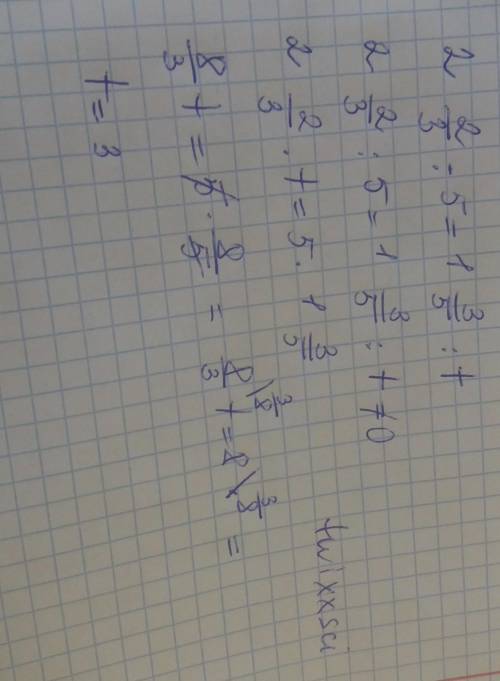 2 2/3 : 5 = 1 3/5 : t
2 2/3 : 5 = 1 3/5 : t ≠ 0
2 2/3 · t = 5 · 1 3/5
8/3 t = 5 · 8/5 = 8/3 t = 8 \ 3/8 =
t = 3
twixxsci